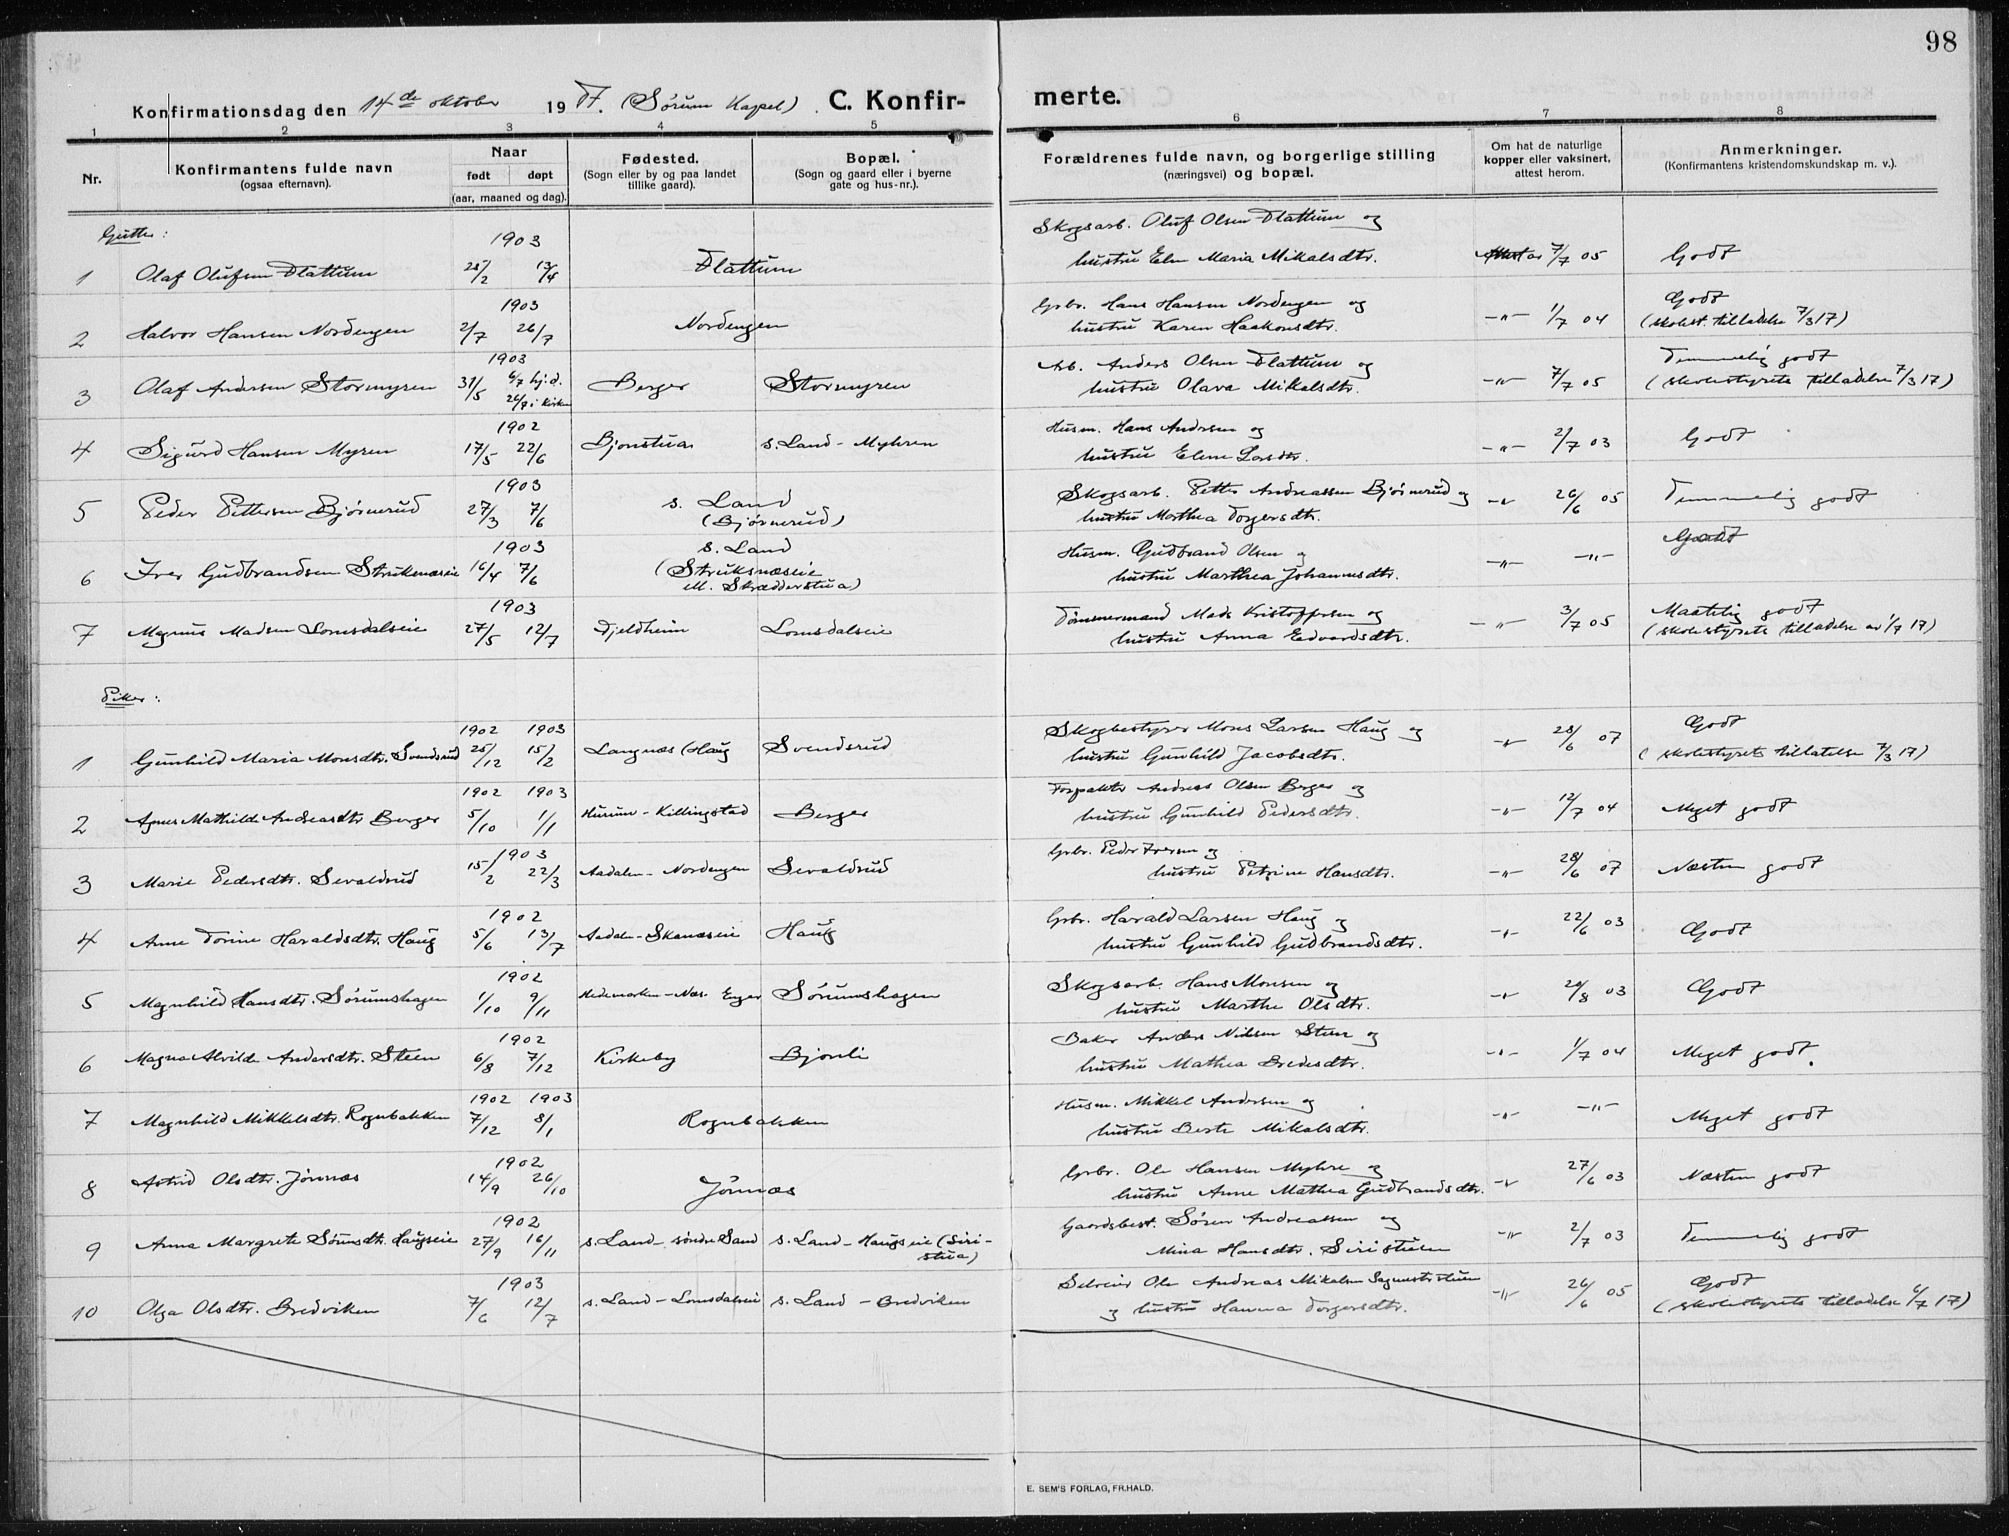 98
Konfirmationsdag den 14de oktober 1917. (Sørum Kapel). C. Konfirmerte.
1 2 3 4 5 6 7 8
Nr. Konfirmantens fulde navn (ogsaa efternavn). Naar født døpt (aar, maaned og dag). Fødested. (Sogn eller by og paa landet tillike gaard). Bopæl. (Sogn og gaard eller i byerne gate og hus-nr.). Forældrenes fulde navn, og borgerlige stilling (næringsvei) og bopæl. Om hat de naturlige kopper eller vaksinert, attest herom. Anmerkninger. (Konfirmantens kristendomskundskap m. v.).
Gutter:
1903 Skogsarb. Oluf Olsen Flattum og
1 Olaf Olufsen Flattum 25/2 13/4 Flattum hustru Elen Maria Mikalsdtr. 7/7 05 Godt
1903 Grbr. Hans Hansen Nordengen og Godt
2 Halvor Hansen Nordengen 2/7 26/7 Nordengen hustru Karen Haakonsdtr. -"- 1/7 04 (skolest. tilladelse 7/3 17)
1903 Arb. Anders Olsen Flattum og Temmelig godt
3 Olaf Andersen Stormyren 31/5 6/7 hj.d. 26/7 i kirken Berger Stormyren hustru Olava Mikalsdtr. -"- 7/7 05 (skolestyrets tilladelse 7/3 17)
1902 Husm. Hans Andersen og
4 Sigurd Hansen Myren 17/5 22/6 Bjonstua s. Land - Myhren hustru Elene Larsdtr. -"- 2/7 03 Godt
1903 Skogsarb. Petter Andreassen Bjørnerud og
5 Peder Pettersen Bjørnerud 27/3 7/6 s. Land (Bjørnerud) hustru Marthea Torgersdtr. -"- 26/6 05 Temmelig godt
1903 s. Land Husm. Gudbrand Olsen og Godt
6 Iver Gudbrandsen Struksnæseie 16/4 7/6 (Struksnæseie ell. Skrædderstua) hustru Marthea Johannesdtr. -"- -"-
1903 Tømmermand Mads Kristoffersen og Maatelig godt
7 Magnus Madsen Lomsdalseie 27/5 12/7 Fjeldheim Lomsdalseie hustru Anna Edvardsdtr. -"- 3/7 05 (skolestyrets tilladelse av 1/7 17)
Piker:
1902 1903 Skogbestyrer Mons Larsen Haug og Godt
1 Gunhild Maria Monsdtr. Svendsrud 25/12 15/2 Langnæs (Haug Svendsrud hustru Gunhild Jacobsdtr. -"- 28/6 07 (skolestyrets tillatelse 7/3 17)
1902 1903 Forpakter Andreas Olsen Berger og
2 Agnes Mathilde Andreasdtr Berger 5/10 1/1 Hurum - Killingstad Berger hustru Gunhild Pedersdtr. -"- 12/7 04 Meget godt
1903 Grbr. Peder Iversen og
3 Marie Pedersdtr. Sevaldrud 15/2 22/3 Aadalen - Nordengen Sevaldrud hustru Petrine Hansdtr. -"- 28/6 07 Næsten godt
1902 Grbr. Harald Larsen Haug og
4 Anne Torine Haraldsdtr. Haug 5/6 13/7 Aadalen - Skanæseie Haug hustru Gunhild Gudbrandsdtr. -"- 22/6 03 Godt
1902 Skogsarb. Hans Monsen og
5 Magnhild Hansdtr. Sørumshagen 1/10 9/11 Hedemarken - Næs. Enger Sørumshagen hustru Marthe Olsdtr. -"- 20/8 03 Godt
1902 Baker Anders Nilsen Steen og
6 Magna Alvilde Andersdtr. Steen 6/8 7/12 Kirkeby Bjonli hustru Mathea Bredesdtr. -"- 1/7 04 Meget godt.
1902 1903 Husm. Mikkel Andersen og
7 Magnhild Mikkelsdtr. Rognbakken 7/12 8/1 Rognbakken hustru Berte Mikalsdtr. -"- -"- Meget godt
1902 Grbr. Ole Hansen Myhre og
8 Astrid Olsdtr. Jønnæs 14/9 26/10 Jønnæs hustru Anne Mathea Gudbrandsdtr. -"- 27/6 03 Næsten godt
1902 Gaardsbest. Søren Andreassen og
9 Anna Margrete Sørensdtr. Haugseie 27/9 16/11 s. Land - søndre Sand s. Land - Haugseie (Siristua) Mina Hansdtr. Siristuen -"- 2/7 03 Temmelig godt
1903 Selveier Ole Andreas Mikalsen Sagmesterstuen Godt
10 Olga Olsdtr. Bredviken 7/6 12/7 s. Land - Lomsdalseie s. Land - Bredviken og hustru Hanna Torgersdtr. -"- 26/6 05 (skolestyrets tilladelse 6/7 17)
E. SEM'S FORLAG, FR.HALD.